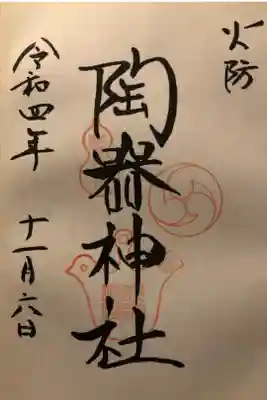 火防
陶器神社
令和四年 十一月六日